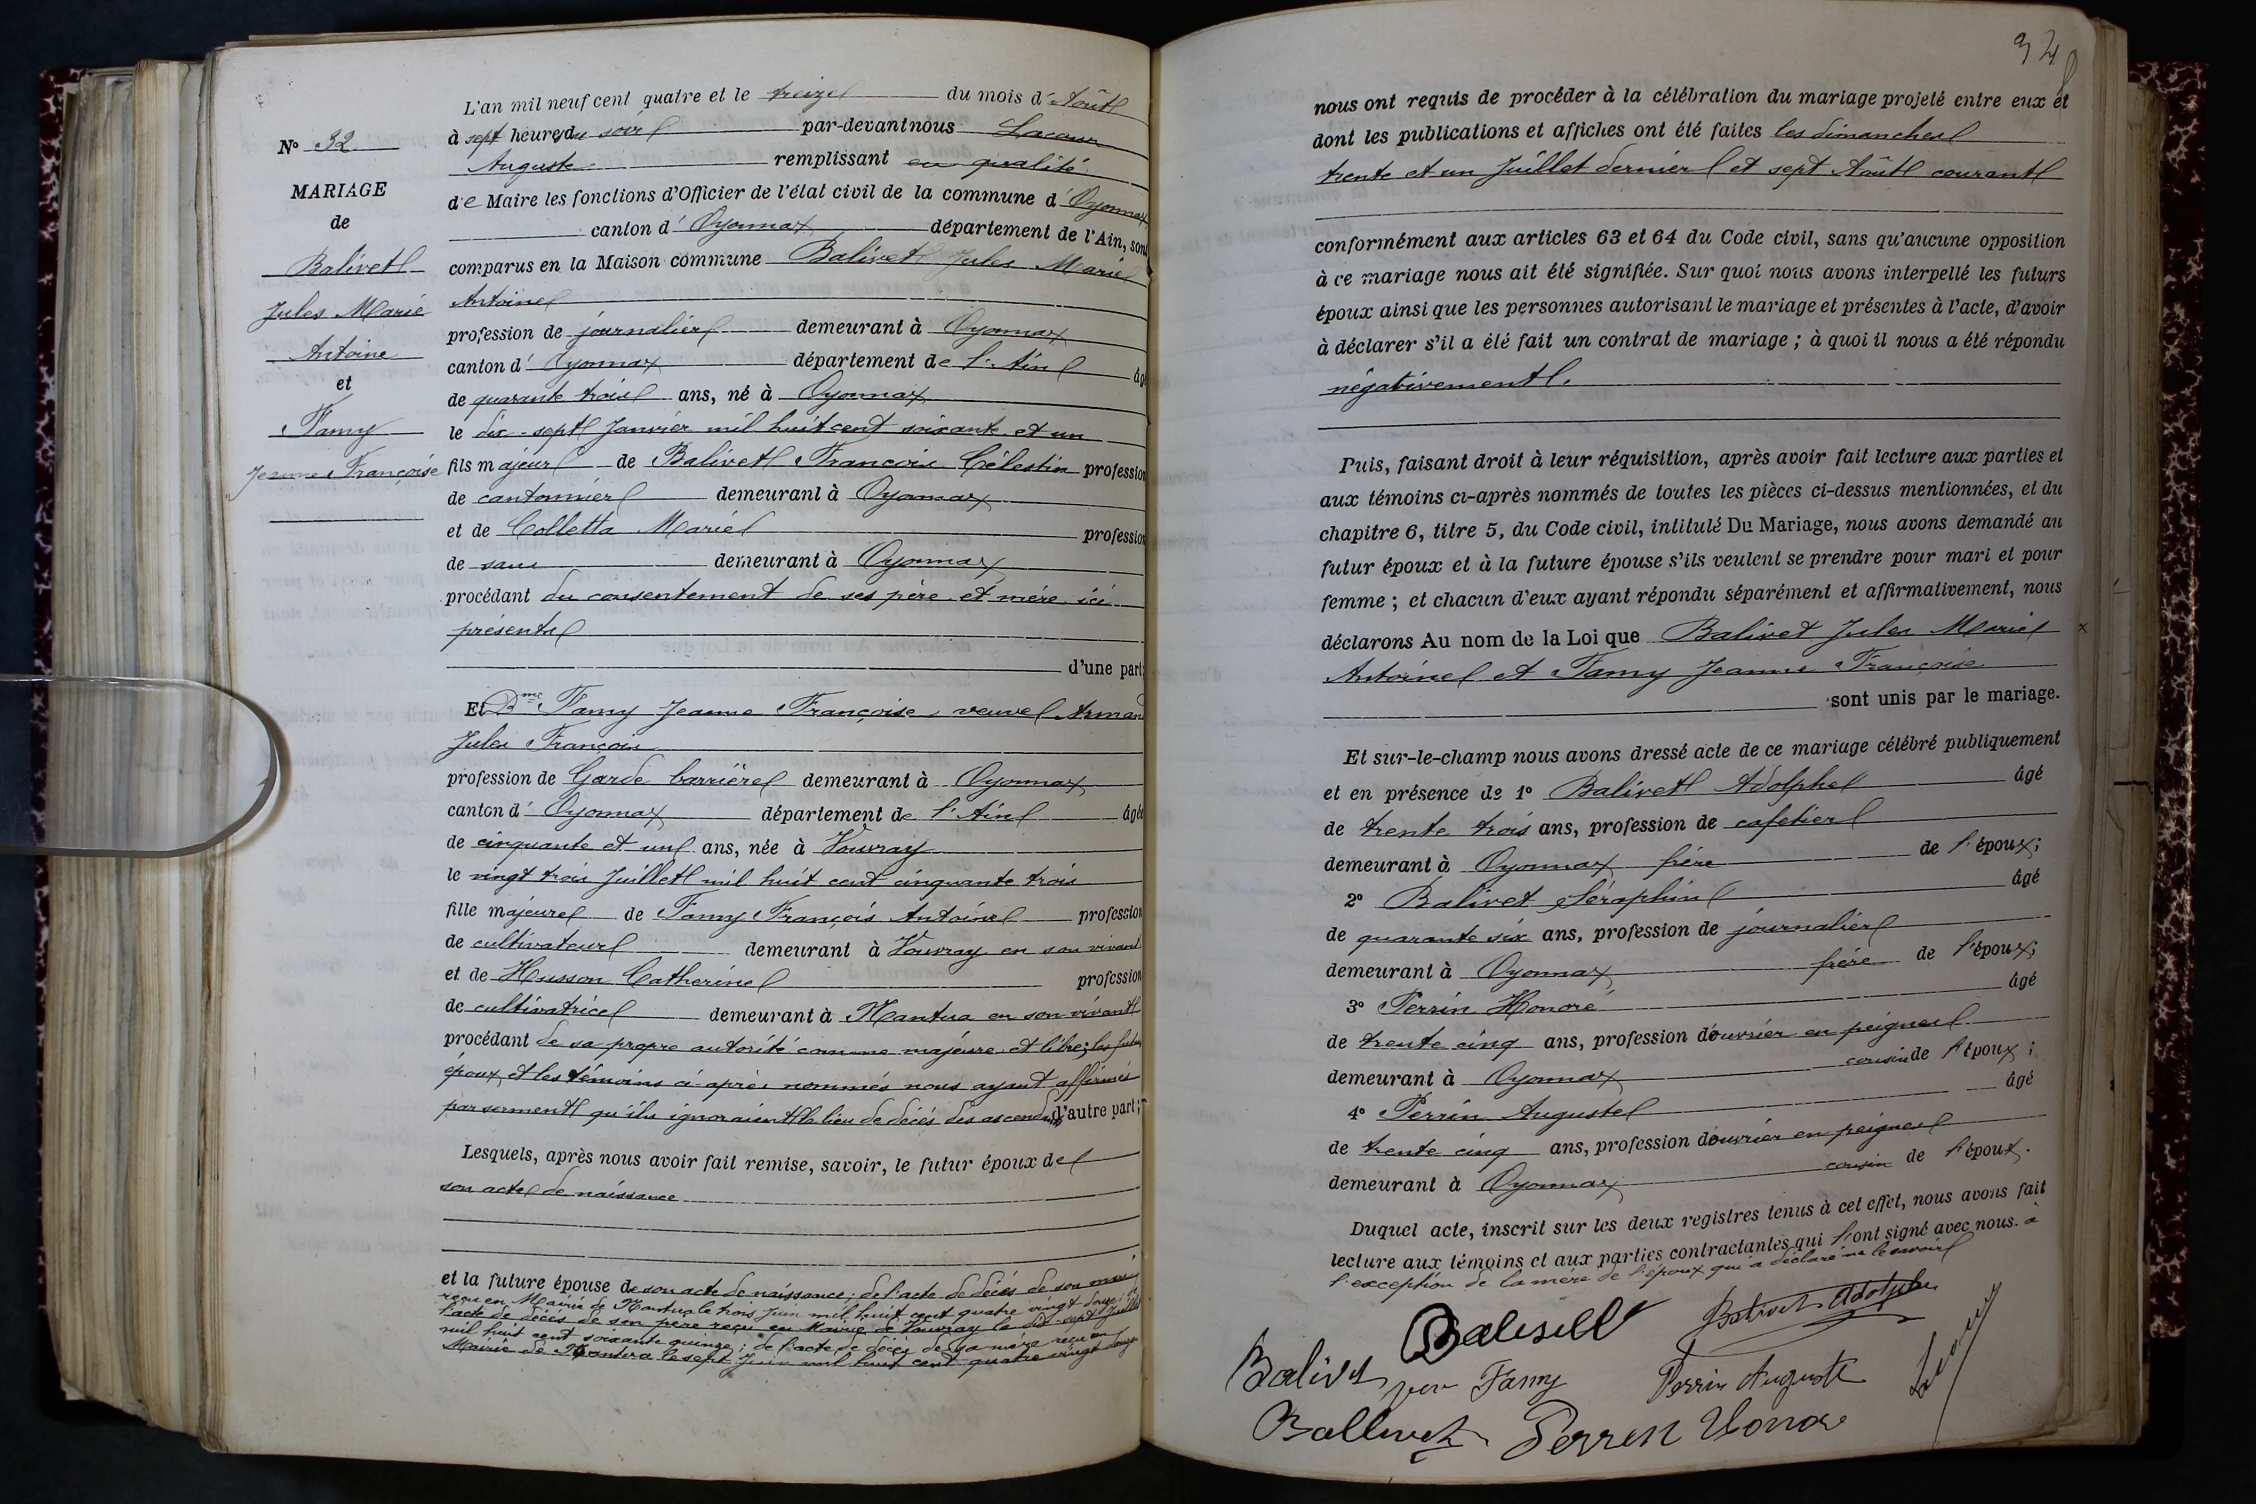 L'an mil neuf cent quatre et le treize du mois d'Août
N° 32
à sept heures du soir par-devant nous Lacour
Auguste remplissant en qualité
MARIAGE
de Maire les fonctions d'Officier de l'état civil de la commune d'Oyonnax
de
canton d'Oyonnax département de l'Ain, sont
Balivet
comparus en la Maison commune Balivet Jules Marie
Jules Marie
Antoine
profession de journalier demeurant à Oyonnax
Antoine
canton d'Oyonnax département de l'Ain âgé
et
de quarante trois ans, né à Oyonnax
Famy
le dix-sept Janvier mil huit cent soixante et un
Jeanne Françoise
fils majeur de Balivet François Célestin profession
de cantonnier demeurant à Oyonnax
et de Colletta Marie profession
de sans demeurant à Oyonnax
procédant du consentement de ses père et mère ici
présents
d'une part;
Et Dme Famy Jeanne Françoise, veuve Armand
Jules François
profession de Garde barrière demeurant à Oyonnax
canton d'Oyonnax département de l'Ain âgée
de cinquante et un ans, née à Vouvray
le vingt trois Juillet mil huit cent cinquante trois
fille majeure de Famy François Antoine profession
de cultivateur demeurant à Vouvray en son vivant
et de Husson Catherine profession
de cultivatrice demeurant à Nantua en son vivant
procédant de sa propre autorité comme majeure et libre; les futurs
époux et les témoins ci-après nommés nous ayant affirmés
par serment qu'ils ignoraient le lieu de décès des ascendants d'autre part;
Lesquels, après nous avoir fait remise, savoir, le futur époux de
son acte de naissance
et la future épouse de son acte de naissance; de l'acte de décès de son mari
reçu en Mairie de Nantua le trois Juin mil huit cent quatre vingt douze; de
l'acte de décès de son père reçu en Mairie de Vouvray le dix-sept Juillet
mil huit cent soixante quinze; de l'acte de décès de sa mère reçu en
Mairie de Nantua le sept Juin mil huit cent quatre vingt douze
nous ont requis de procéder à la célébration du mariage projeté entre eux et
dont les publications et affiches ont été faites les dimanches
trente et un Juillet dernier et sept Août courant
conformément aux articles 63 et 64 du Code civil, sans qu'aucune opposition
à ce mariage nous ait été signifiée. Sur quoi nous avons interpellé les futurs
époux ainsi que les personnes autorisant le mariage et présentes à l'acte, d'avoir
à déclarer s'il a été fait un contrat de mariage; à quoi il nous a été répondu
négativement.
Puis, faisant droit à leur réquisition, après avoir fait lecture aux parties et
aux témoins ci-après nommés de toutes les pièces ci-dessus mentionnées, et du
chapitre 6, titre 5, du Code civil, intitulé Du Mariage, nous avons demandé au
futur époux et à la future épouse s'ils veulent se prendre pour mari et pour
femme; et chacun d'eux ayant répondu séparément et affirmativement, nous
déclarons Au nom de la Loi que Balivet Jules Marie
Antoine et Famy Jeanne Françoise
sont unis par le mariage.
Et sur-le-champ nous avons dressé acte de ce mariage célébré publiquement
et en présence de 1° Balivet Adolphe âgé
de trente trois ans, profession de cafetier
demeurant à Oyonnax frère de l'époux;
2° Balivet Séraphin âgé
de quarante six ans, profession de journalier
demeurant à Oyonnax frère de l'époux;
3° Perrin Honoré âgé
de trente cinq ans, profession d'ouvrier en peignes
demeurant à Oyonnax cousin de l'époux;
4° Perrin Auguste âgé
de trente cinq ans, profession d'ouvrier en peignes
demeurant à Oyonnax cousin de l'époux.
Duquel acte, inscrit sur les deux registres tenus à cet effet, nous avons fait
lecture aux témoins et aux parties contractantes qui l'ont signé avec nous. à
l'exception de la mère de l'époux qui a déclaré ne le savoir
Balivet Adolphe
Balivet Famy Perrin Auguste
Ballivet Perren Honoré